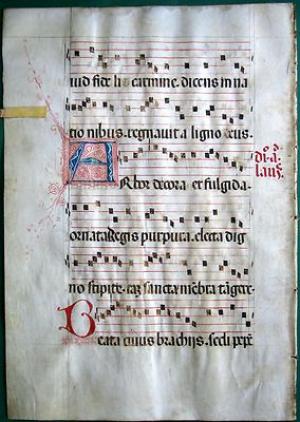 uid fide li carmine. dicens in na
tio nibus. regnauit a ligno deus.
di. a.
laus.
Arbor decora et fulgida.
ornata Regis purpura. electa dig
no stipite. tam sancta mēbra tāgere.
Beata cuius brachijs. secli